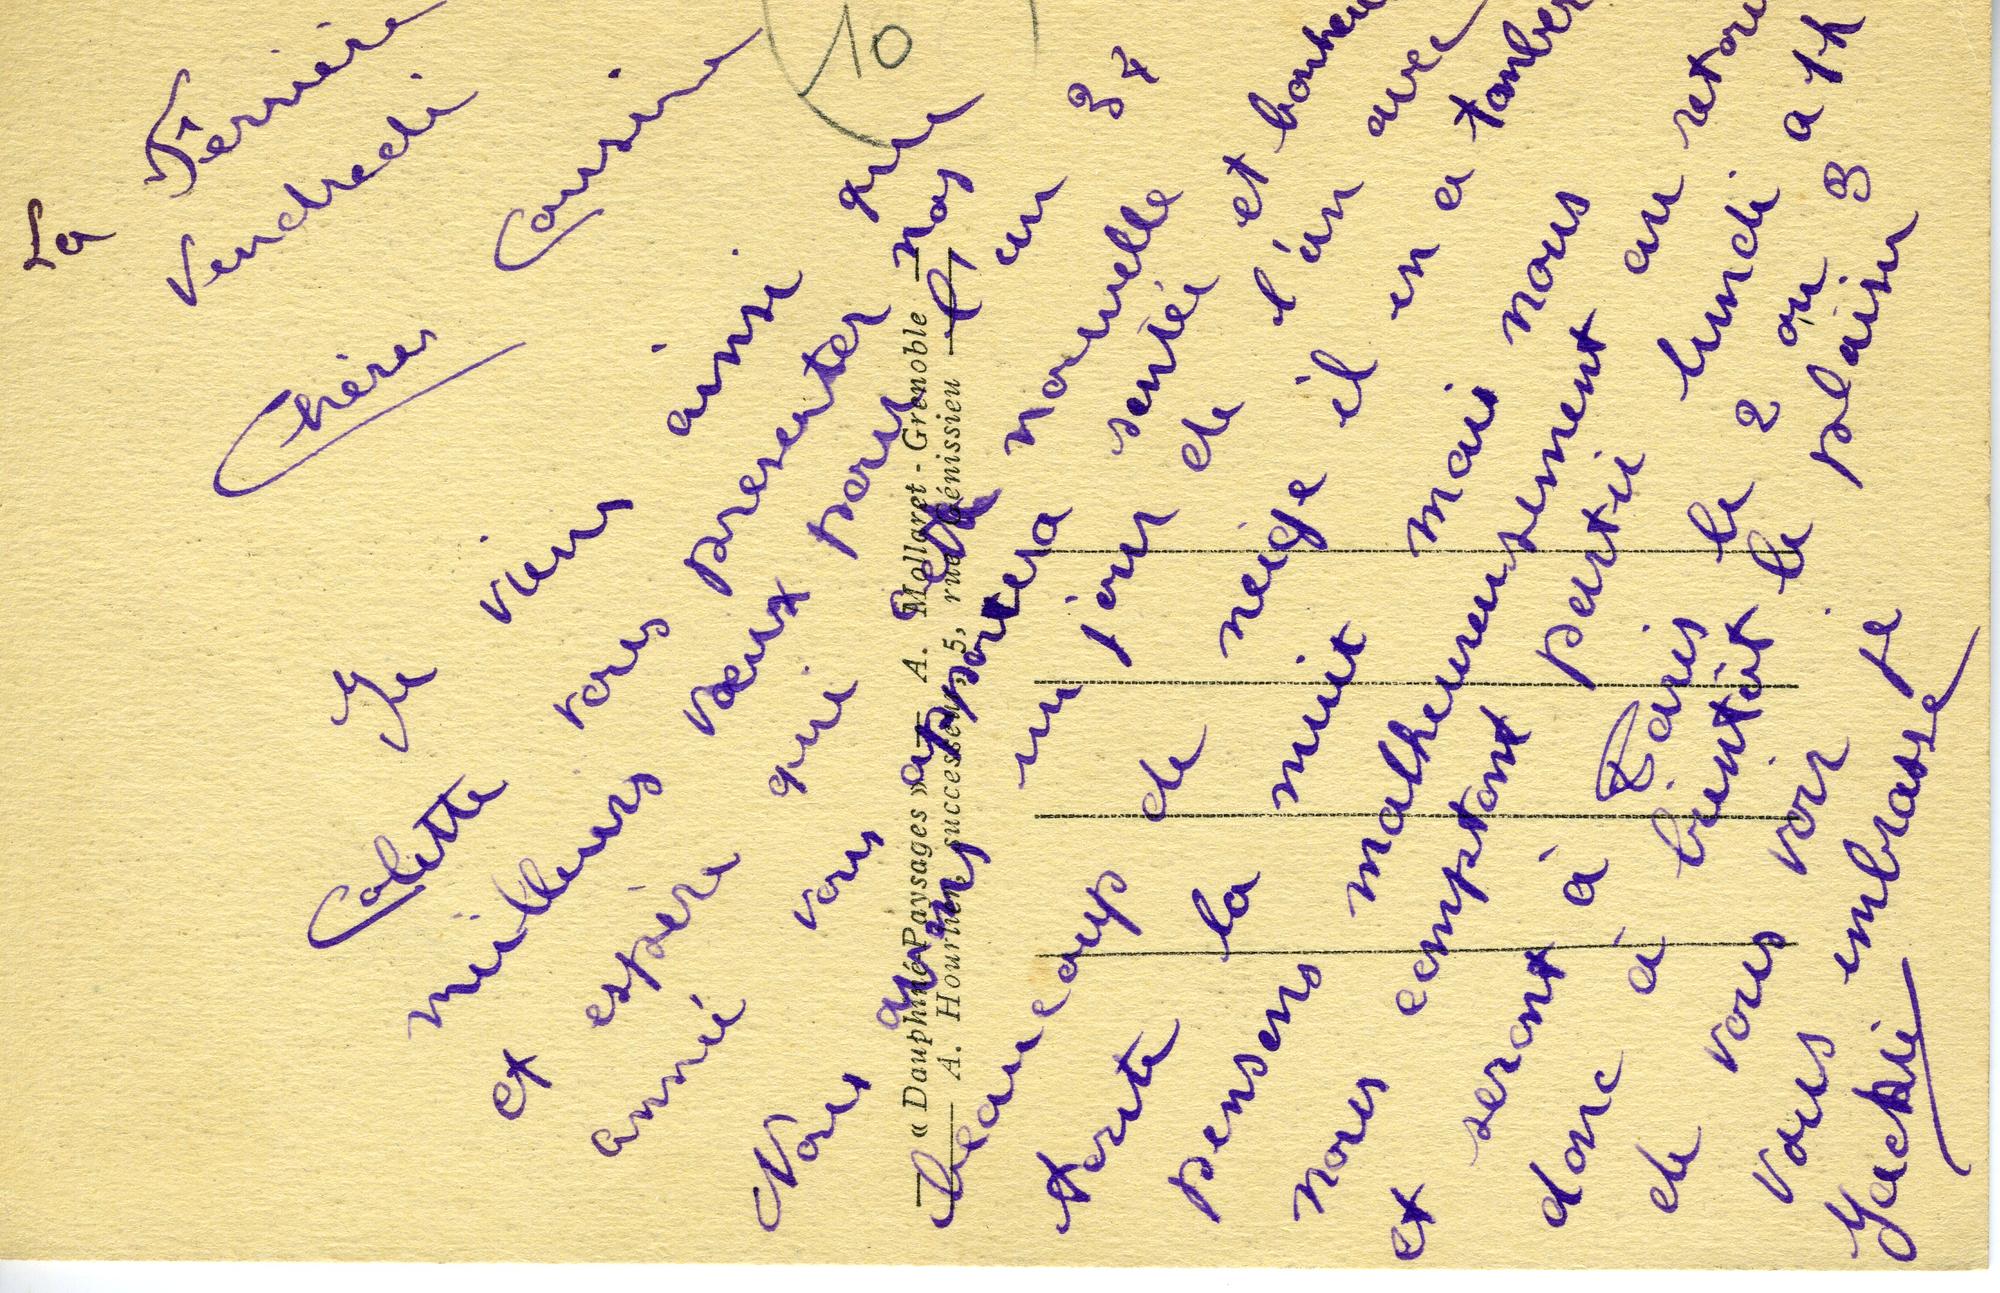 La Ferrière
Vendredi
Chères Cousine
Je viens ainsi que
Colette vous présenter nos
meilleurs vœux pour l'an 34
et espère que cette nouvelle
année vous apportera santé et bonheur
Nous avons un jour de l'an avec
beaucoup de neige il en a tomber
toute la nuit mais nous
pensons malheureusement au retour
nous comptons partir lundi a 1h
et seront à Paris le 2 ou 3
donc à bientôt le plaisir
de vous voir je
vous embrasse
Jackie
10
« Dauphiné-Paysages » — A. Mollaret - Grenoble
A. Hourlier, successeur, 5, rue Génissieu